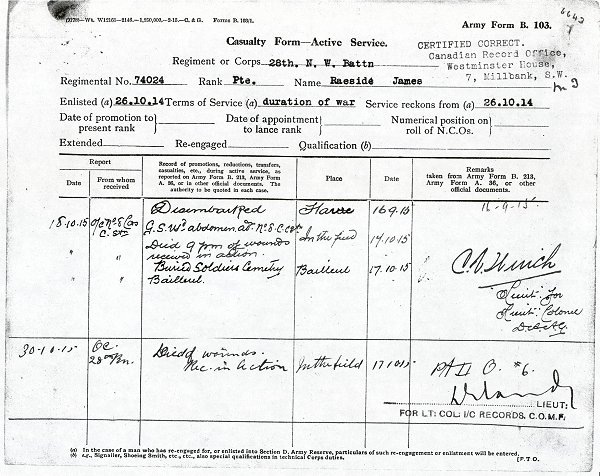 (2070)—Wt. W12161—2146.—1,250,000.—2-15.—C. & G. Forms B. 103/1.
6643
Army Form B. 103.
Casualty Form—Active Service.
CERTIFIED CORRECT.
Canadian Record Office,
Westminster House,
7, Millbank, S.W.
Regiment or Corps 28th. N. W. Battn
Regimental No. 74024 Rank Pte. Name Raeside James
Enlisted (a) 26.10.14 Terms of Service (a) duration of war Service reckons from (a) 26.10.14
Date of promotion to present rank } Date of appointment to lance rank } Numerical position on roll of N.C.Os. }
Extended Re-engaged Qualification (b)
Report
Date From whom received
Record of promotions, reductions, transfers, casualties, etc., during active service, as reported on Army Form B. 213, Army Form A. 36, or in other official documents. The authority to be quoted in each case.
Place
Date
Remarks
taken from Army Form B. 213, Army Form A. 36, or other official documents.
Disembarked Havre 16 9 15 16-9-15
18.10.15 O/C No 8 Cas C. Stn G.S.Wd abdomen at No 8. C.C. Stn In the field 17.10.15
" " Died 9 pm of wounds
received in action.
" " Buried Soldiers Cemetery Bailleul 17.10.15
Bailleul.
Lieut for
Lieut Colonel
30-10-15 OC. 28th Bn. Died of wounds. Rec. in Action In the field 17 10 15 Pt II O. #6.
LIEUT:
FOR LT: COL: I/C RECORDS. C.O.M.F.
(a) In the case of a man who has re-engaged for, or enlisted into Section D. Army Reserve, particulars of such re-engagement or enlistment will be entered.
(b) e.g., Signaller, Shoeing Smith, etc., etc., also special qualifications in technical Corps duties.
[P.T.O.